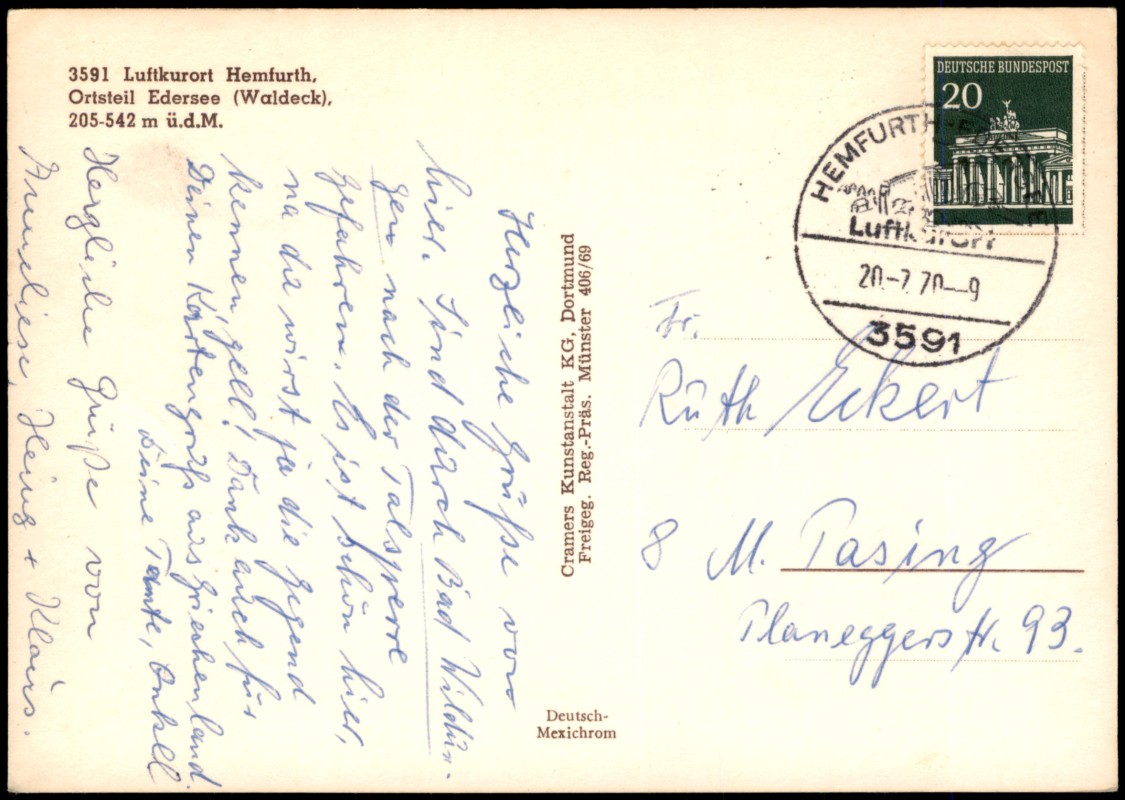 3591 Luftkurort Hemfurth,
Ortsteil Edersee (Waldeck),
205-542 m ü.d.M.
Herzliche Grüße von
hier. Sind durch Bad Wildun-
gen nach der Talsperre
gefahren. Es ist schön hier,
na du wirst ja die Gegend
kennen, gell! Dank auch für
Deinen Kartengruß aus Griechenland.
Deine Tante, Onkell
Herzliche Grüße von
Anneliese, Heinz + Klaus.
Cramers Kunstanstalt KG, Dortmund
Freigeg. Reg.-Präs. Münster 406/69
Deutsch-
Mexichrom
DEUTSCHE BUNDESPOST
20
HEMFURTH-EDERSEE
Luftkurort
20-7.70--9
3591
Fr.
Ruth Eckert
8 M. Pasing
Planeggerstr. 93.